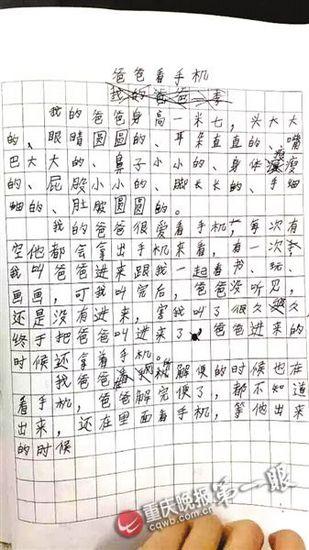 爸爸看手机
我的爸爸身高一米七，头大大
的、眼睛圆圆的、耳朵直直的、嘴
巴大大的、鼻子小小的、身体瘦瘦
的、屁股小小的、脚长长的、手细
细的、肚脐圆圆的。
我的爸爸很爱看手机，每次有
空他都会拿出手机来看，有一次
我叫爸爸进来跟我一起看书、玩、
画画，可我叫完后，爸爸没听见，
还是没有进来，害我叫了很久
终于把爸爸叫进来了，爸爸进来的
时候还拿着手机。
我爸爸解便的时候也在
看手机，爸爸解完便了，都不知道
出来，还在里面看手机，等他出来
的时候
重庆晚报第一眼
www.cqwb.com.cn